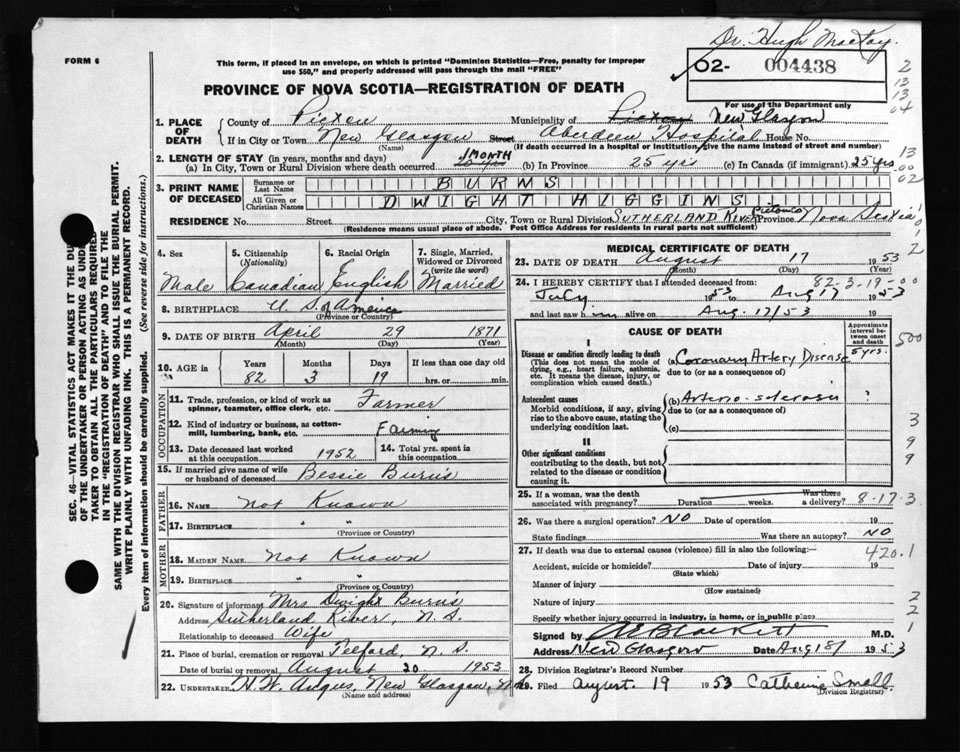 Dr. Hugh MacKay.
FORM 6
This form, if placed in an envelope, on which is printed "Dominion Statistics—Free, penalty for improper use $50," and properly addressed will pass through the mail "FREE"
O2- 004438
For use of the Department only
PROVINCE OF NOVA SCOTIA—REGISTRATION OF DEATH
1. PLACE OF DEATH
County of Pictou Municipality of Pictou New Glasgow
If in City or Town New Glasgow Street Aberdeen Hospital House No.
(Name) (If death occurred in a hospital or institution, give the name instead of street and number)
2. LENGTH OF STAY (in years, months and days)
(a) In City, Town or Rural Division where death occurred 1 MONTH (b) In Province 25 yrs (c) In Canada (if immigrant) 25 yrs
3. PRINT NAME OF DECEASED
Surname or Last Name BURNS
All Given or Christian Names DWIGHT HIGGINS
RESIDENCE No. Street City, Town or Rural Division SUTHERLAND RIVER Pictou Co Province Nova Scotia
(Residence means usual place of abode. Post Office Address for residents in rural parts not sufficient)
4. Sex Male
5. Citizenship (Nationality) Canadian
6. Racial Origin English
7. Single, Married, Widowed or Divorced (write the word) Married
8. BIRTHPLACE U. S. of America
(Province or Country)
9. DATE OF BIRTH April 29 1871
(Month) (Day) (Year)
10. AGE in Years 82 Months 3 Days 19 If less than one day old hrs. or min.
OCCUPATION
11. Trade, profession, or kind of work as spinner, teamster, office clerk, etc. Farmer
12. Kind of industry or business, as cotton-mill, lumbering, bank, etc. Farming
13. Date deceased last worked at this occupation 1952
14. Total yrs. spent in this occupation
15. If married give name of wife or husband of deceased Bessie Burns
FATHER
16. NAME Not Known
17. BIRTHPLACE " "
(Province or Country)
MOTHER
18. MAIDEN NAME Not Known
19. BIRTHPLACE " "
(Province or Country)
20. Signature of informant Mrs Dwight Burns
Address Sutherland River, N. S.
Relationship to deceased Wife
21. Place of burial, cremation or removal Telford, N. S.
Date of burial or removal August 20 1953
22. UNDERTAKER H. W. Angus, New Glasgow, N.S.
(Name and address)
MEDICAL CERTIFICATE OF DEATH
23. DATE OF DEATH August 17 1953
(Month) (Day) (Year)
82-3-19-00
24. I HEREBY CERTIFY that I attended deceased from:
July 1953 to Aug 17 1953
and last saw him alive on Aug. 17/53
CAUSE OF DEATH
Approximate interval between onset and death
I
Disease or condition directly leading to death
(This does not mean the mode of dying, e.g., heart failure, asthenia, etc. It means the disease, injury, or complication which caused death.)
(a) Coronary Artery Disease 5 yrs.
due to (or as a consequence of)
Antecedent causes
Morbid conditions, if any, giving rise to the above cause, stating the underlying condition last.
(b) Arterio-sclerosis ?
due to (or as a consequence of)
(c)
II
Other significant conditions
contributing to the death, but not related to the disease or condition causing it.
25. If a woman, was the death associated with pregnancy? Duration weeks. Was there a delivery? 8-17-3
26. Was there a surgical operation? NO Date of operation 19
State findings Was there an autopsy? NO
27. If death was due to external causes (violence) fill in also the following:— 420.1
Accident, suicide or homicide? Date of injury 19
(State which)
Manner of injury
(How sustained)
Nature of injury
Specify whether injury occurred in industry, in home, or in public place
Signed by Blackett M.D.
Address New Glasgow Date Aug 18/ 1953
28. Division Registrar's Record Number
29. Filed August. 19 1953 Catherine Small
(Division Registrar)
SEC. 46—VITAL STATISTICS ACT MAKES IT THE DU
OF THE UNDERTAKER OR PERSON ACTING AS UND
TAKER TO OBTAIN ALL THE PARTICULARS REQUIRED
IN THE "REGISTRATION OF DEATH" AND TO FILE THE
SAME WITH THE DIVISION REGISTRAR WHO SHALL ISSUE THE BURIAL PERMIT.
WRITE PLAINLY WITH UNFADING INK. THIS IS A PERMANENT RECORD.
Every item of information should be carefully supplied. (See reverse side for instructions.)
2
13
13
04
13
.00
02
2
500
3
9
9
2
2
1